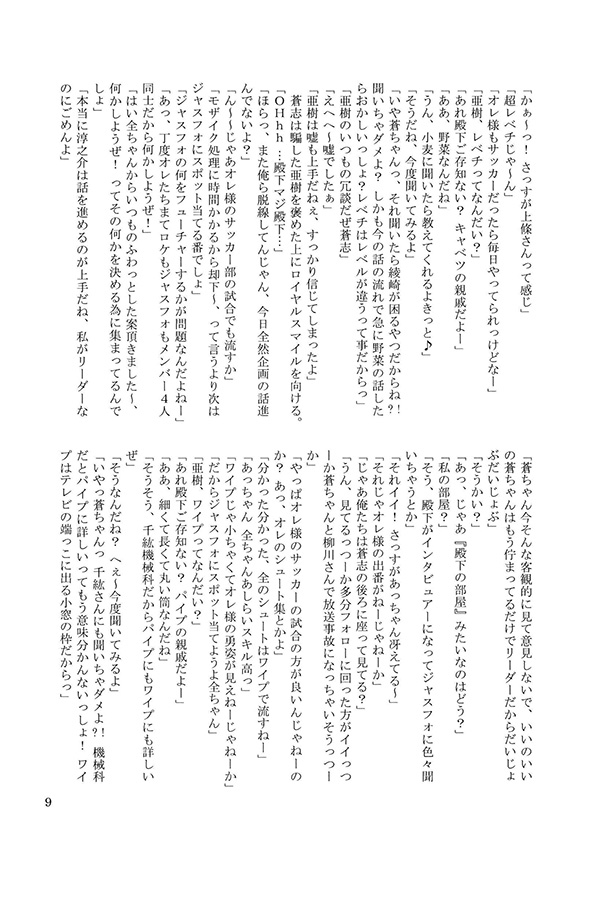 「かぁ～っ！ さっすが上條さんって感じ」
「超レベチじゃ～ん」
「オレ様もサッカーだったら毎日やってられっけどなー」
「亜樹、レベチってなんだい？」
「あれ殿下ご存知ない？ キャベツの親戚だよー」
「ああ、野菜なんだね」
「うん、小麦に聞いたら教えてくれるよきっと♪」
「そうだね、今度聞いてみるよ」
「いや蒼ちゃんっ、それ聞いたら綾崎が困るやつだからね?!
聞いちゃダメよ？ しかも今の話の流れで急に野菜の話した
らおかしいっしょ？レベチはレベルが違うって事だからっ」
「亜樹のいつもの冗談だぜ蒼志」
「えへ～嘘でしたぁ」
「亜樹は嘘も上手だねぇ、すっかり信じてしまったよ」
蒼志は騙した亜樹を褒めた上にロイヤルスマイルを向ける。
「OHhh…殿下マジ殿下…」
「ほらっ、また俺ら脱線してんじゃん、今日全然企画の話進
んでないよ？」
「ん～～じゃあオレ様のサッカー部の試合でも流すか」
「モザイク処理に時間かかるから却下～、って言うより次は
ジャスフォにスポット当てる番でしょ」
「ジャスフォの何をフューチャーするかが問題なんだよねー」
「あっ、丁度オレたちまてロケもジャスフォもメンバー４人
同士だから何かしようぜ！」
「はい全ちゃんからいつものふわっとした案頂きました～、
何かしようぜ！ ってその何かを決める為に集まってるんで
しょ」
「本当に淳之介は話を進めるのが上手だね、私がリーダーな
のにごめんよ」
「蒼ちゃん今そんな客観的に見て意見しないで、いいのいい
の蒼ちゃんはもう佇まってるだけでリーダーだからだいじょ
ぶだいじょぶ」
「そうかい？」
「あっ、じゃあ『殿下の部屋』みたいなのはどう？」
「私の部屋？」
「そう、殿下がインタビュアーになってジャスフォに色々聞
いちゃうとか」
「それイイ！ さっすがあっちゃん冴えてる～」
「それじゃオレ様の出番がねーじゃねーか」
「じゃあ俺たちは蒼志の後ろに座って見てる？」
「うん、見てるっつーか多分フォローに回った方がイイっつ
ーか蒼ちゃんと柳川さんで放送事故になっちゃいそうっつー
か」
「やっぱオレ様のサッカーの試合の方が良いんじゃねーの
か？ あっ、オレのシュート集とかよ」
「分かった分かった、全のシュートはワイプで流すねー」
「あっちゃん 全ちゃんあしらいスキル高っ」
「ワイプじゃ小ちゃくてオレ様の勇姿が見えねーじゃねーか」
「だからジャスフォにスポット当てようよ全ちゃん」
「亜樹、ワイプってなんだい？」
「あれ殿下ご存知ない？ パイプの親戚だよー」
「ああ、細くて長くて丸い筒なんだね」
「そうそう、千紘機械科だからパイプにもワイプにも詳しい
ぜ」
「そうなんだね？ へぇ～今度聞いてみるよ」
「いやっ蒼ちゃんっ 千紘さんにも聞いちゃダメよ?! 機械科
だとパイプに詳しいってもう意味分かんないっしょ！ ワイ
プはテレビの端っこに出る小窓の枠だからっ」
9